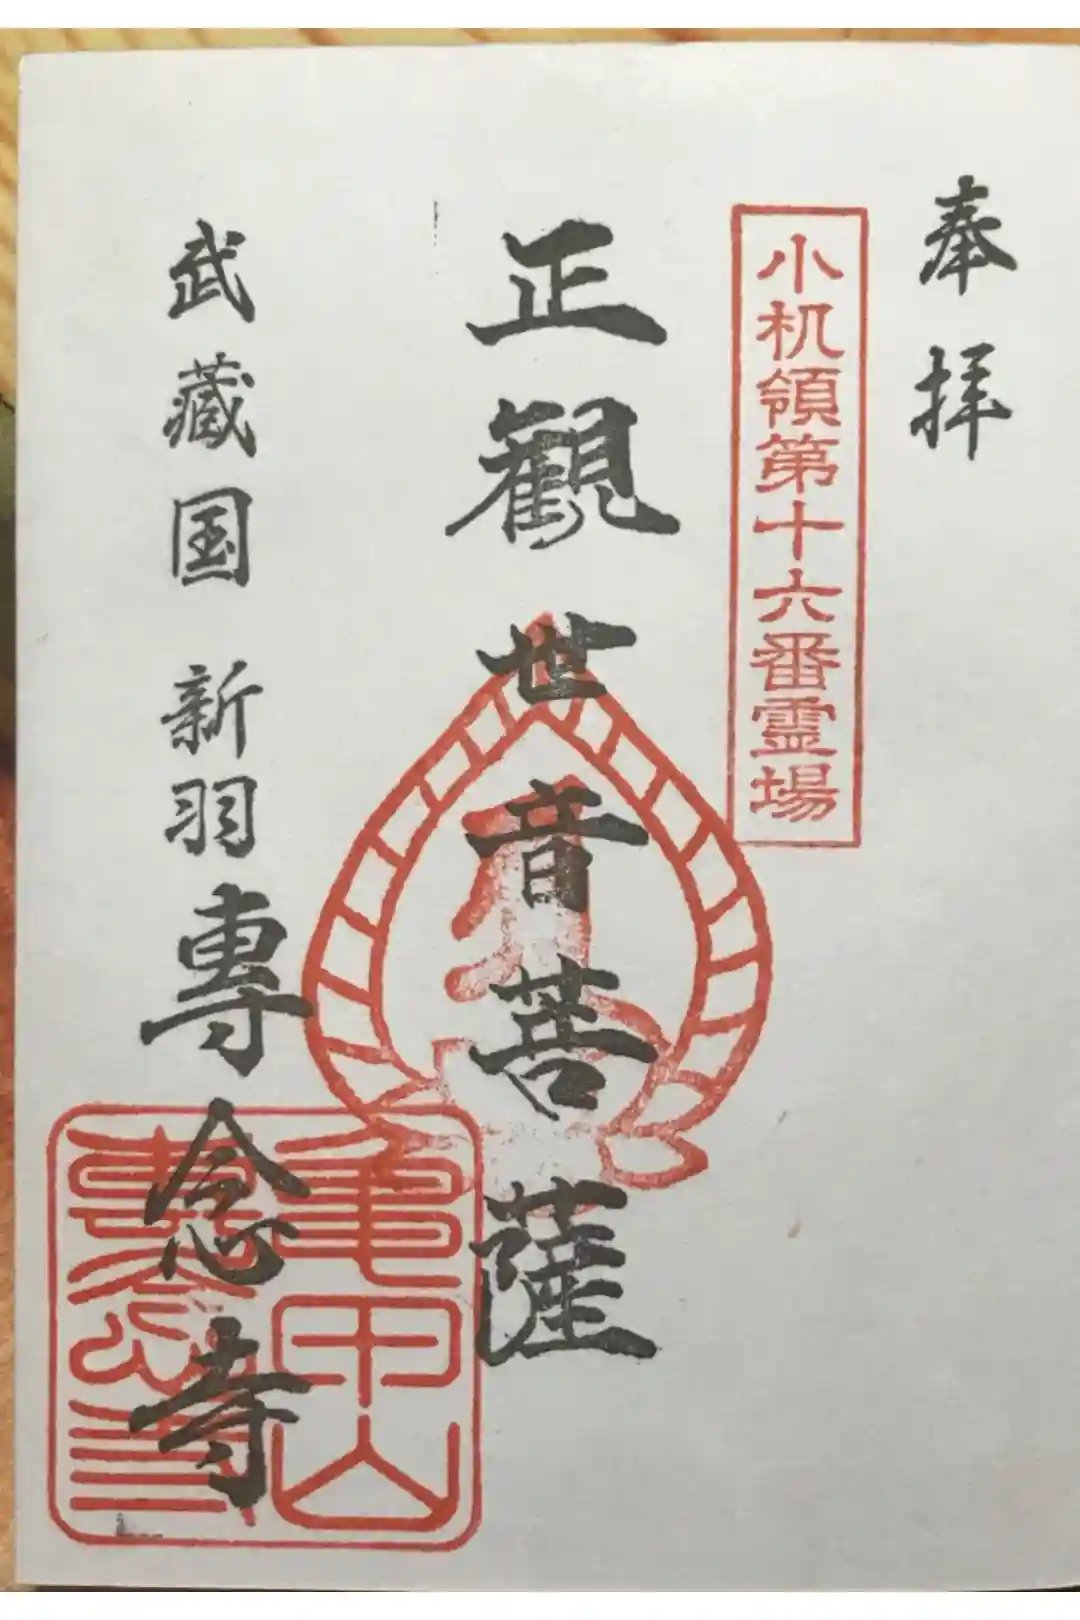 奉拝
小机領第十六番霊場
正観世音菩薩
武蔵国 新羽 専念寺
亀甲山
専念寺